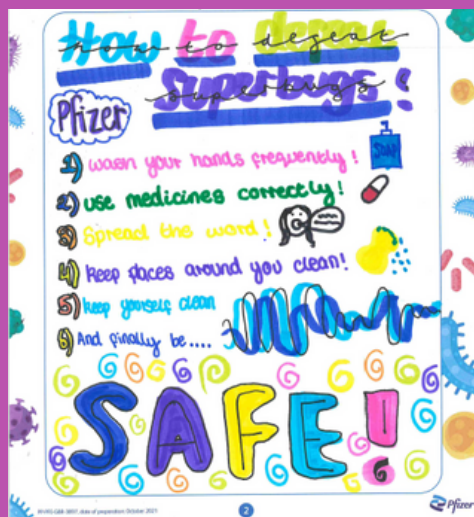 How to defeat
Superbugs!
Pfizer
1) wash your hands frequently!
SOAP
2) use medicines correctly!
3) Spread the word!
4) keep places around you clean!
5) keep yourself clean
6) And finally be....
SAFE!
date of preparation: October 2021
2
Pfizer